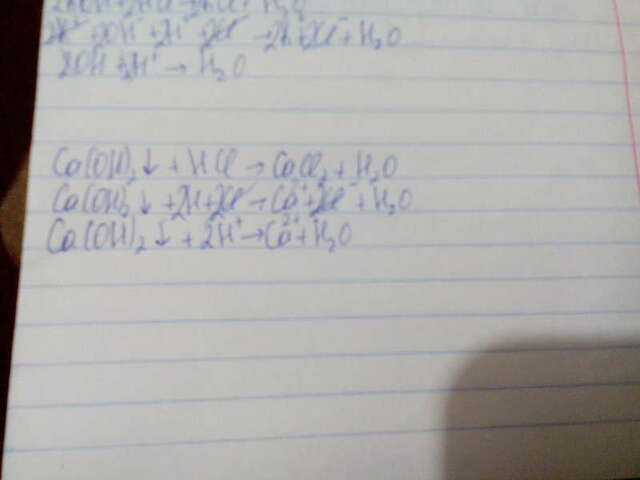 2K⁺ + 2OH⁻ + 2H⁺ + 2Cl⁻ → 2K⁺ + 2Cl⁻ + H₂O
2OH + 2H⁺ → H₂O
Ca(OH)₂↓ + HCl → CaCl₂ + H₂O
Ca(OH)₂↓ + 2H + 2Cl⁻ → Ca²⁺ + 2Cl⁻ + H₂O
Ca(OH)₂↓ + 2H⁺ → Ca²⁺ + H₂O